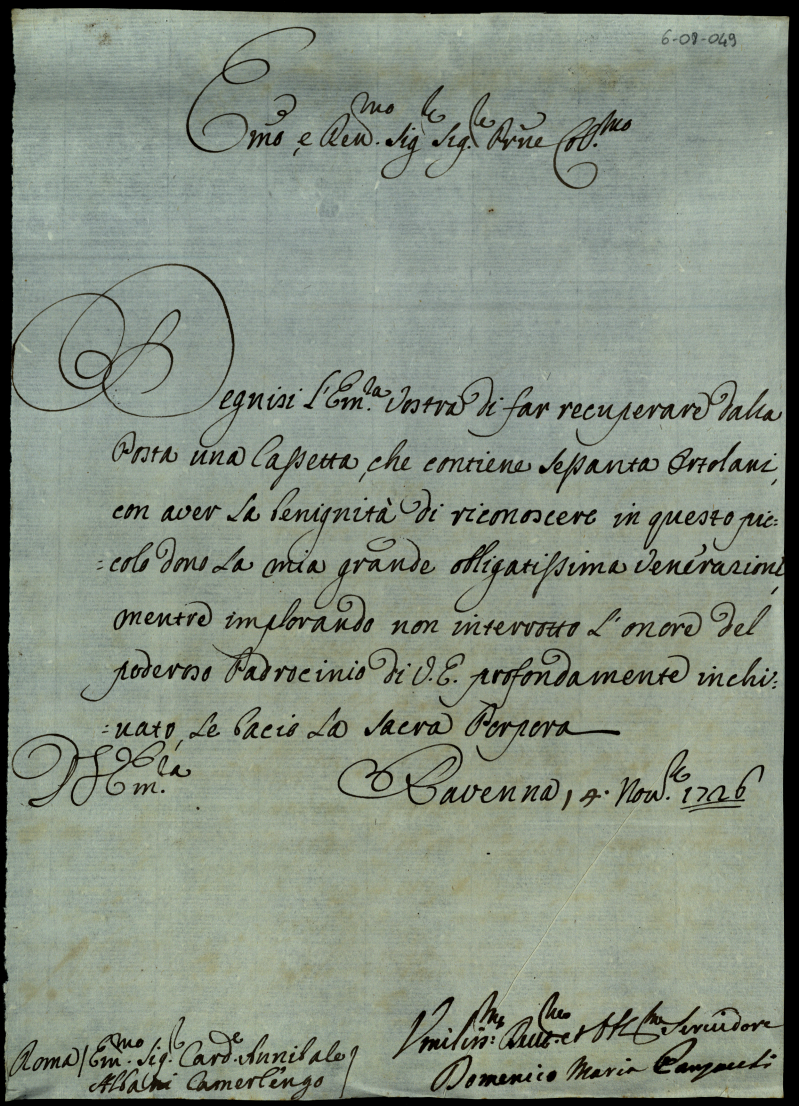 6-09-049
Em̃o, e Rev.mo Sig.re Sig.re Pr̃ne Col.mo
Degnisi l'Em.za Vostra di far recuperare dalla
Posta una Cassetta, che contiene sessanta Ortolani,
con aver la benignità di riconoscere in questo pic=
=colo dono la mia grande obligatissima venerazione,
mentre implorando non interrotto l'onore del
poderoso Padrocinio di V.E. profondamente inchi=
=nato, le bacio la Sacra Porpora
D V Em.za
Ravenna, 4. Nov.re 1726
Umiliss.mo et Servidore
Domenico Maria
Roma / Em.mo Sig.r Card.e Annibale
Albani Camerlengo /